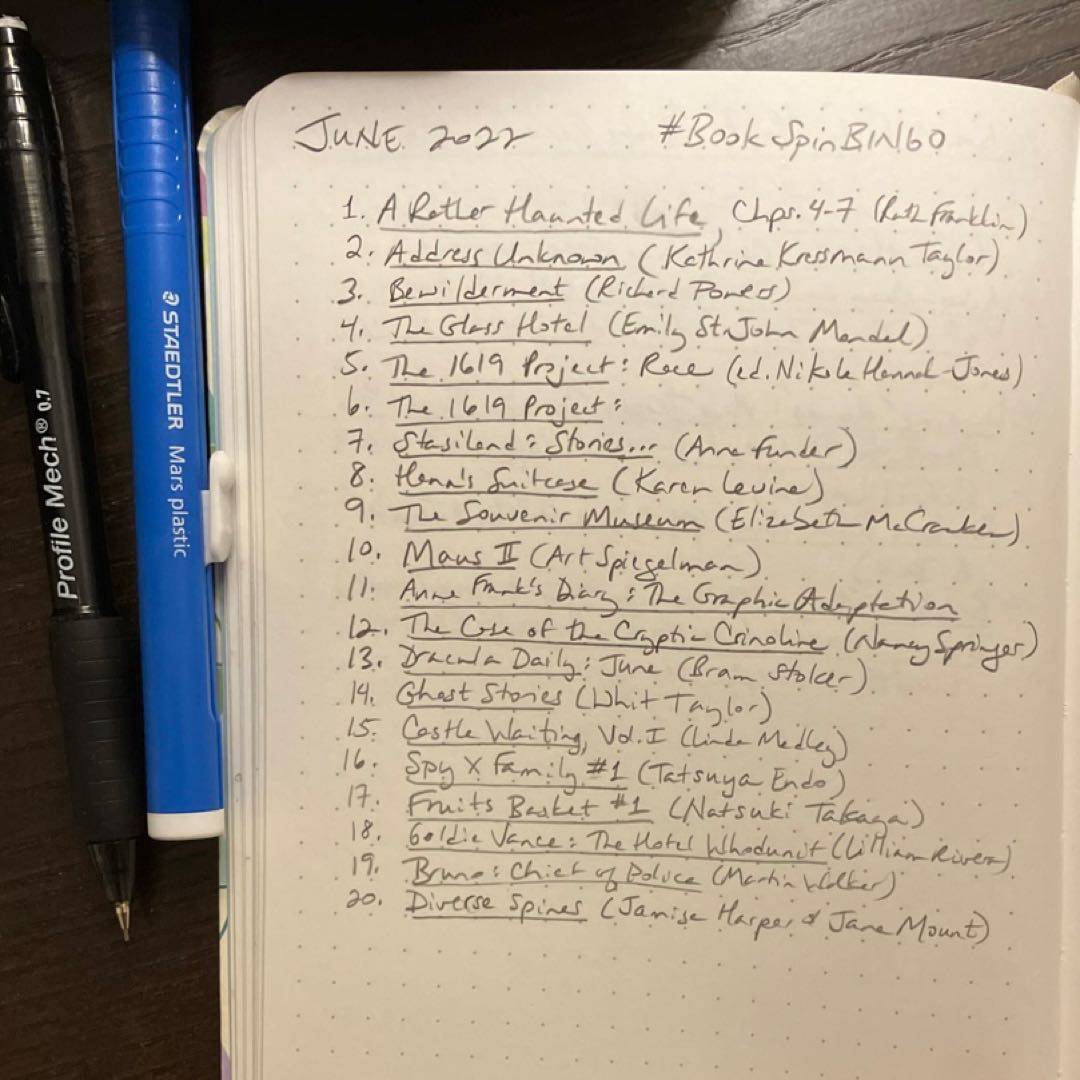 JUNE 2022 #BookSpinBINGO
1. A Rather Haunted Life, Chps. 4-7 (Ruth Franklin)
2. Address Unknown (Kathrine Kressmann Taylor)
3. Bewilderment (Richard Powers)
4. The Glass Hotel (Emily St. John Mandel)
5. The 1619 Project: Race (ed. Nikole Hannah-Jones)
6. The 1619 Project:
7. Stasiland: Stories... (Anna Funder)
8. Hana's Suitcase (Karen Levine)
9. The Souvenir Museum (Elizabeth McCracken)
10. Maus II (Art Spiegelman)
11. Anne Frank's Diary: The Graphic Adaptation
12. The Case of the Cryptic Crinoline (Nancy Springer)
13. Dracula Daily: June (Bram Stoker)
14. Ghost Stories (Whit Taylor)
15. Castle Waiting, Vol. I (Linda Medley)
16. Spy X Family #1 (Tatsuya Endo)
17. Fruits Basket #1 (Natsuki Takaya)
18. Goldie Vance: The Hotel Whodunit (Lilliam Rivera)
19. Bruno: Chief of Police (Martin Walker)
20. Diverse Spines (Jamise Harper & Jane Mount)
Profile Mech® 0.7
STAEDTLER Mars plastic